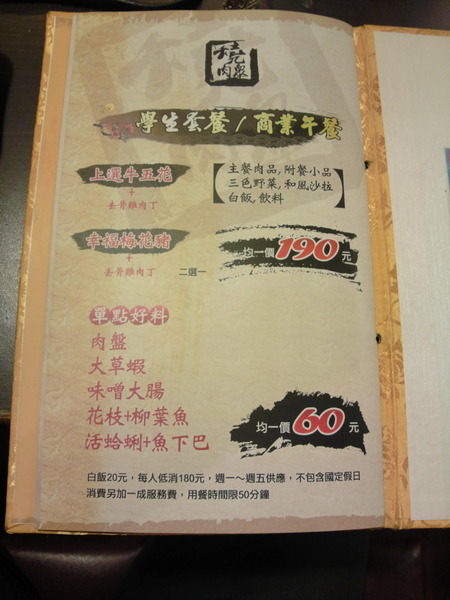 燒肉眾
學生套餐/商業午餐
上選牛五花
+
去骨雞肉丁
主餐肉品,附餐小品
三色野菜,和風沙拉
白飯,飲料
幸福梅花豬
+
去骨雞肉丁
二選一
均一價190元
單點好料
肉盤
大草蝦
味噌大腸
花枝+柳葉魚
活蛤蜊+魚下巴
均一價60元
白飯20元，每人低消180元，週一～週五供應，不包含國定假日
消費另加一成服務費，用餐時間限50分鐘